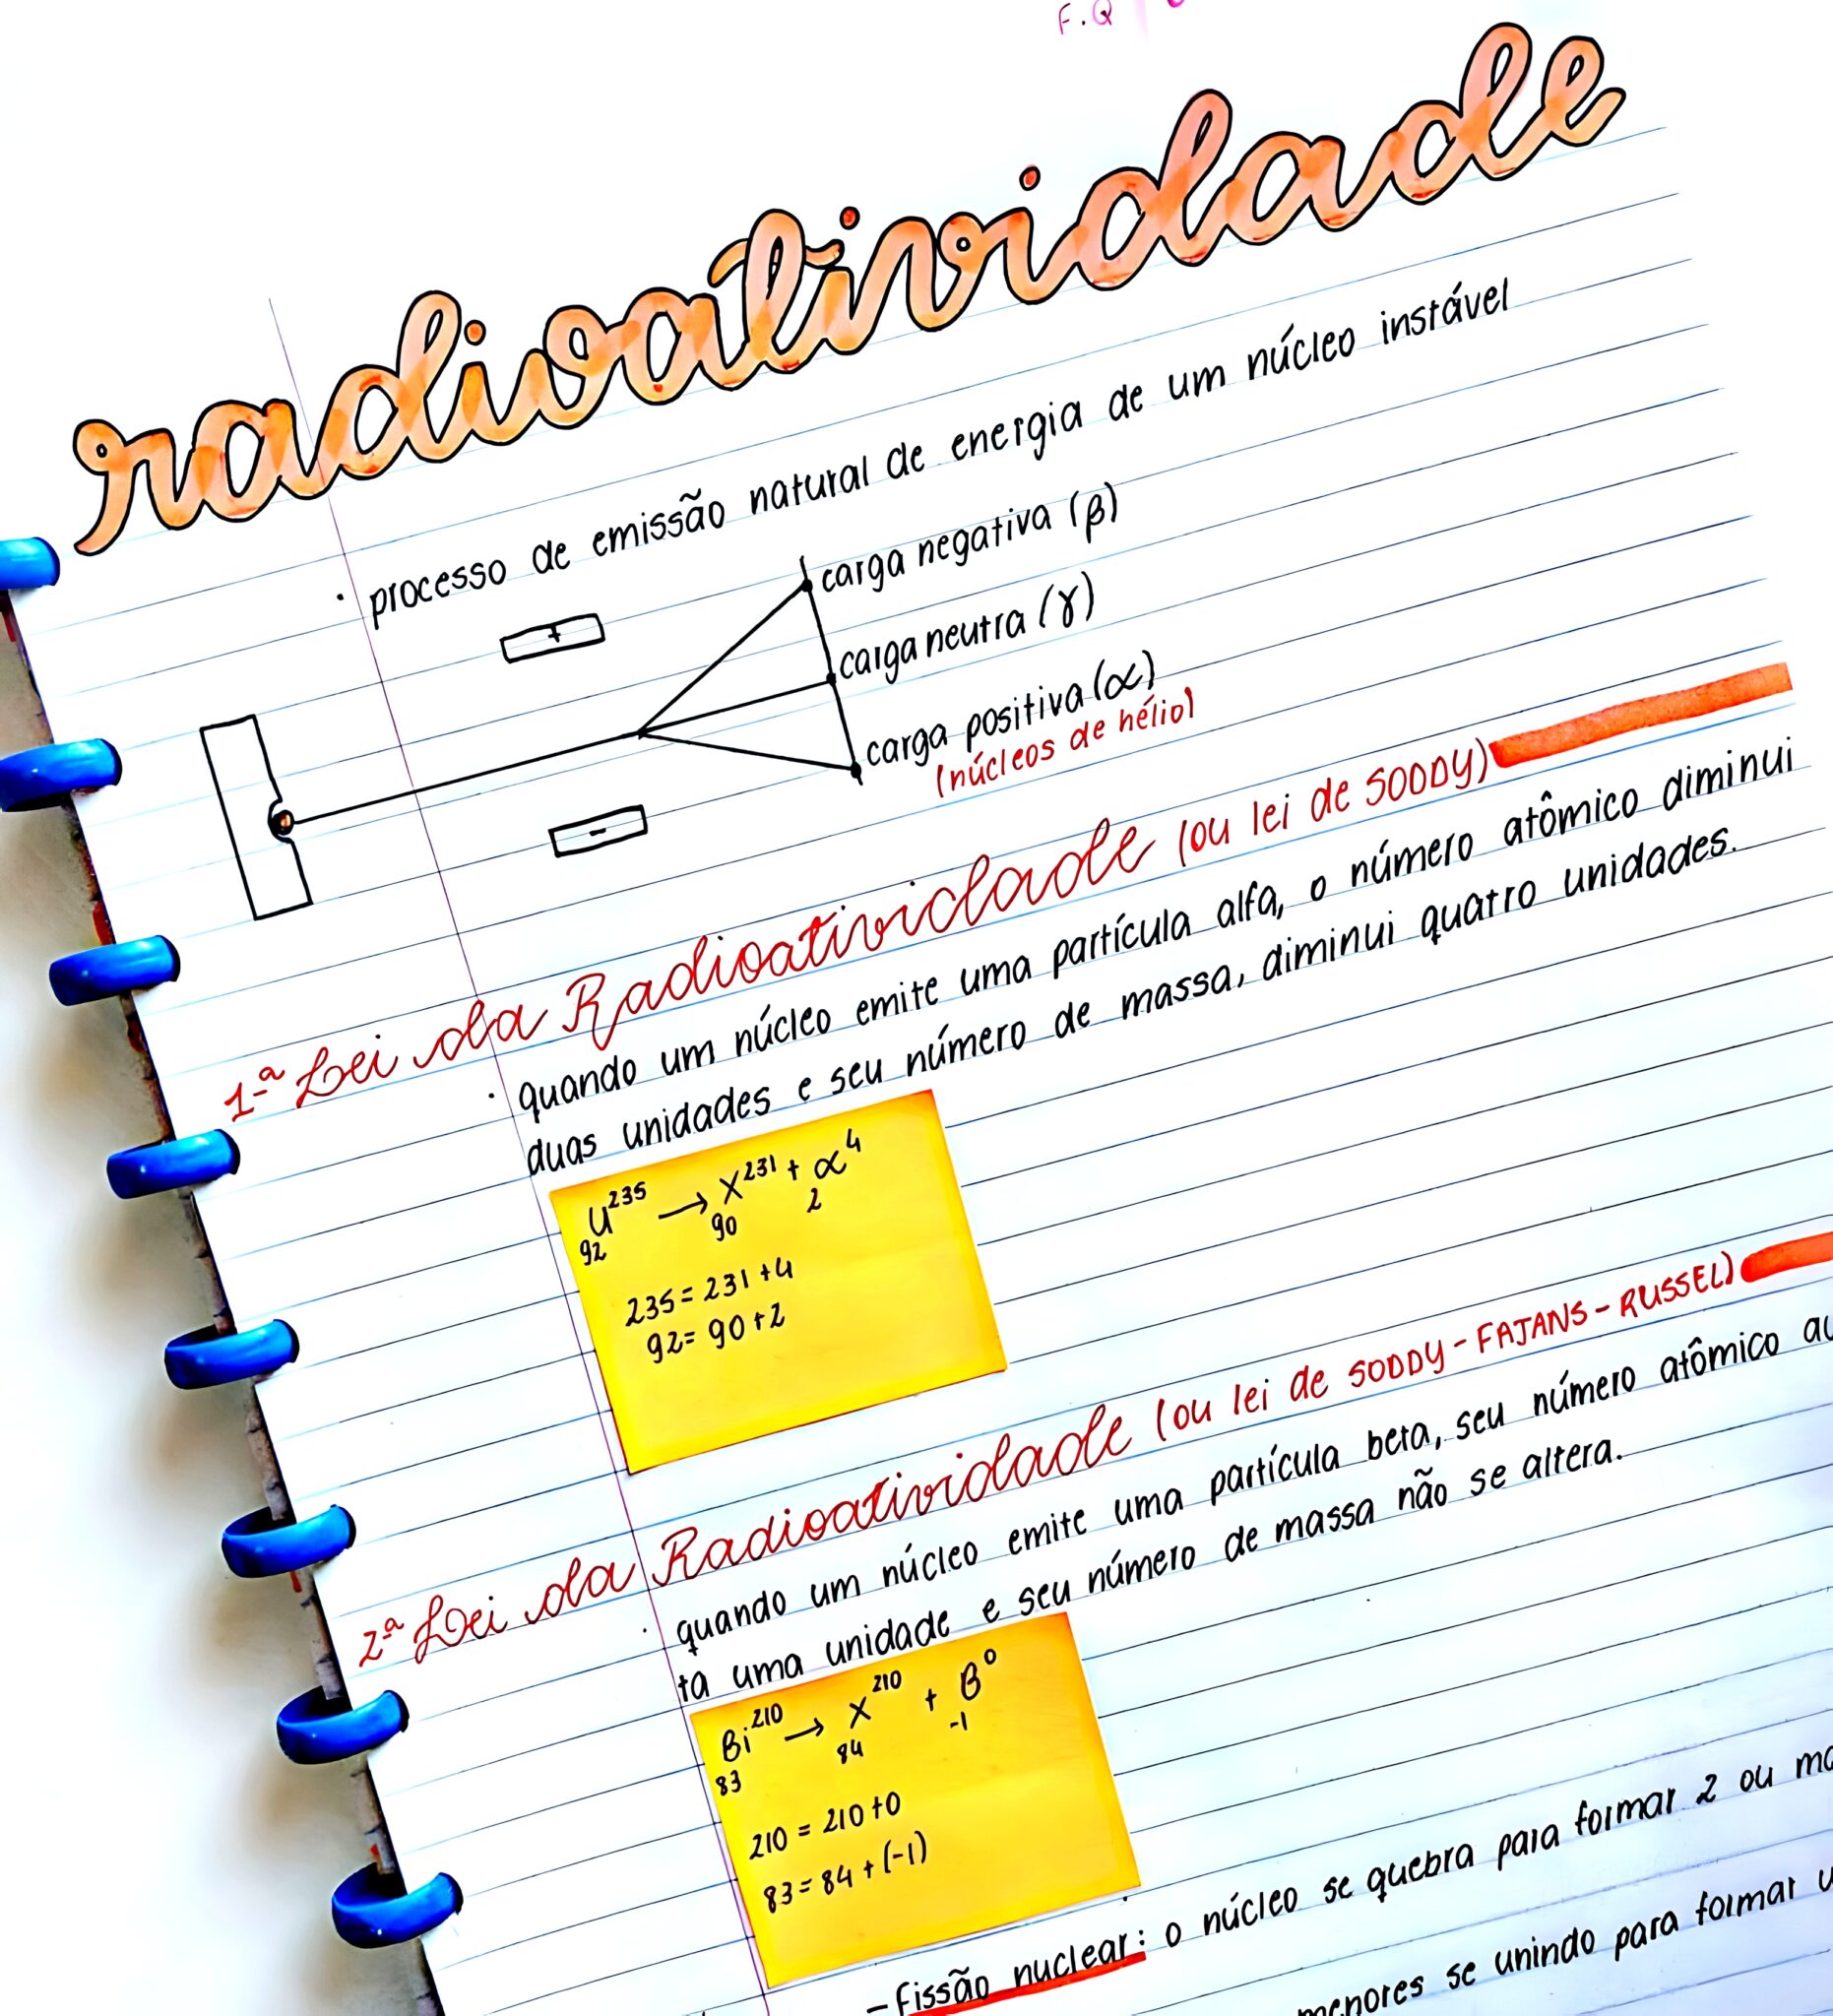 F.Q
radioatividade
· processo de emissão natural de energia de um núcleo instável
+
carga negativa (β)
carga neutra (γ)
carga positiva (α)
(núcleos de hélio)
-
1ª Lei da Radioatividade (ou lei de SODDY)
· quando um núcleo emite uma partícula alfa, o número atômico diminui
duas unidades e seu número de massa, diminui quatro unidades.
₉₂U²³⁵ → ₉₀X²³¹ + ₂α⁴
235 = 231 + 4
92 = 90 + 2
2ª Lei da Radioatividade (ou lei de SODDY - FAJANS - RUSSEL)
· quando um núcleo emite uma partícula beta, seu número atômico au
ta uma unidade e seu número de massa não se altera.
₈₃Bi²¹⁰ → ₈₄X²¹⁰ + ₋₁β⁰
210 = 210 + 0
83 = 84 + (-1)
- Fissão nuclear: o núcleo se quebra para formar 2 ou ma
menores se unindo para formar u